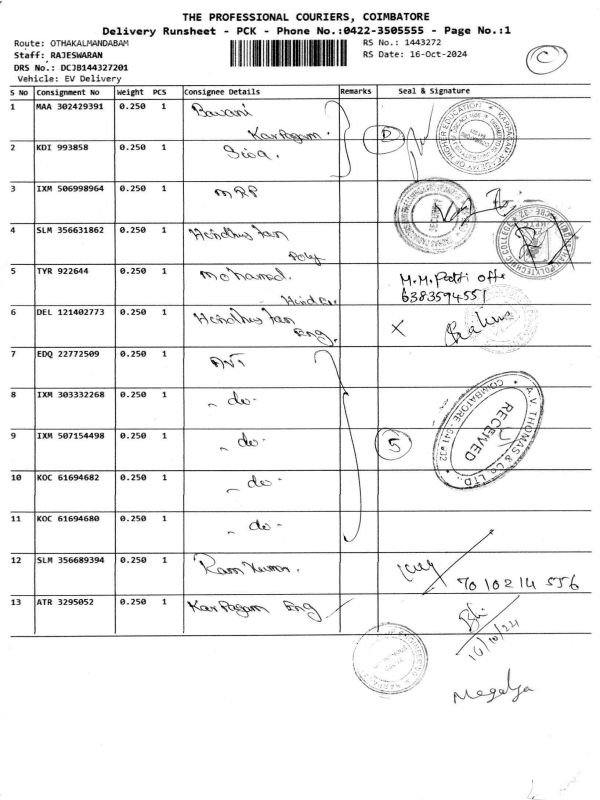 THE PROFESSIONAL COURIERS, COIMBATORE
Delivery Runsheet - PCK - Phone No.:0422-3505555 - Page No.:1
Route: OTHAKALMANDABAM
RS No.: 1443272
Staff: RAJESWARAN
RS Date: 16-Oct-2024
C
DRS No.: DCJB144327201
Vehicle: EV Delivery
S No Consignment No Weight PCS Consignee Details Remarks Seal & Signature
1 MAA 302429391 0.250 1 Bavani
Karpagam.
D
2 KDI 993858 0.250 1 Siva.
3 IXM 506998964 0.250 1 MRP
4 SLM 356631862 0.250 1 Hindhus tan
Poly
5 TYR 922644 0.250 1 Mohamed.
M.M.
6383594551
6 DEL 121402773 0.250 1 Hindhus tan
Eng.
X
7 EDQ 22772509 0.250 1 AVT
8 IXM 303332268 0.250 1 - do -
9 IXM 507154498 0.250 1 - do -
5
A.V. THOMAS & CO LTD.,
COIMBATORE - 641 032
RECEIVED
10 KOC 61694682 0.250 1 - do -
11 KOC 61694680 0.250 1 - do -
12 SLM 356689394 0.250 1 Ram kumar.
7010214556
13 ATR 3295052 0.250 1 Karpagam Eng
16/10/24
Megalya